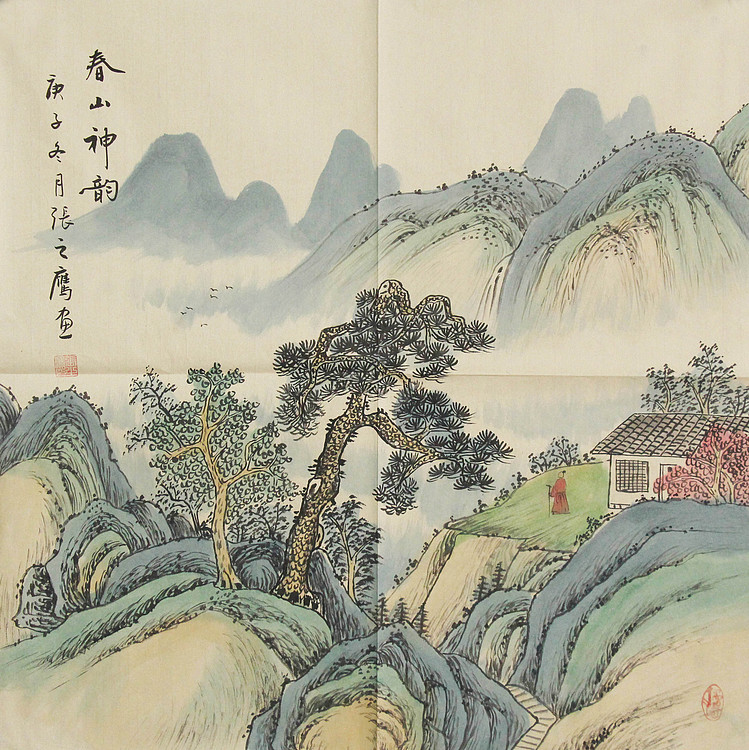 春山神韵
庚子冬月張之鹰画